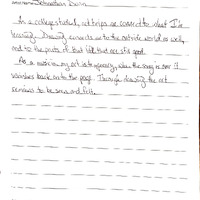 As a college student, art helps me connect to what I'm
learning. Drawing connects me to the outside world as well,
and to the parts of that feel good.
As a musician, my art is temporary, when the song is over it
vanishes back into the page. Through drawing the art
remains to be seen and felt.